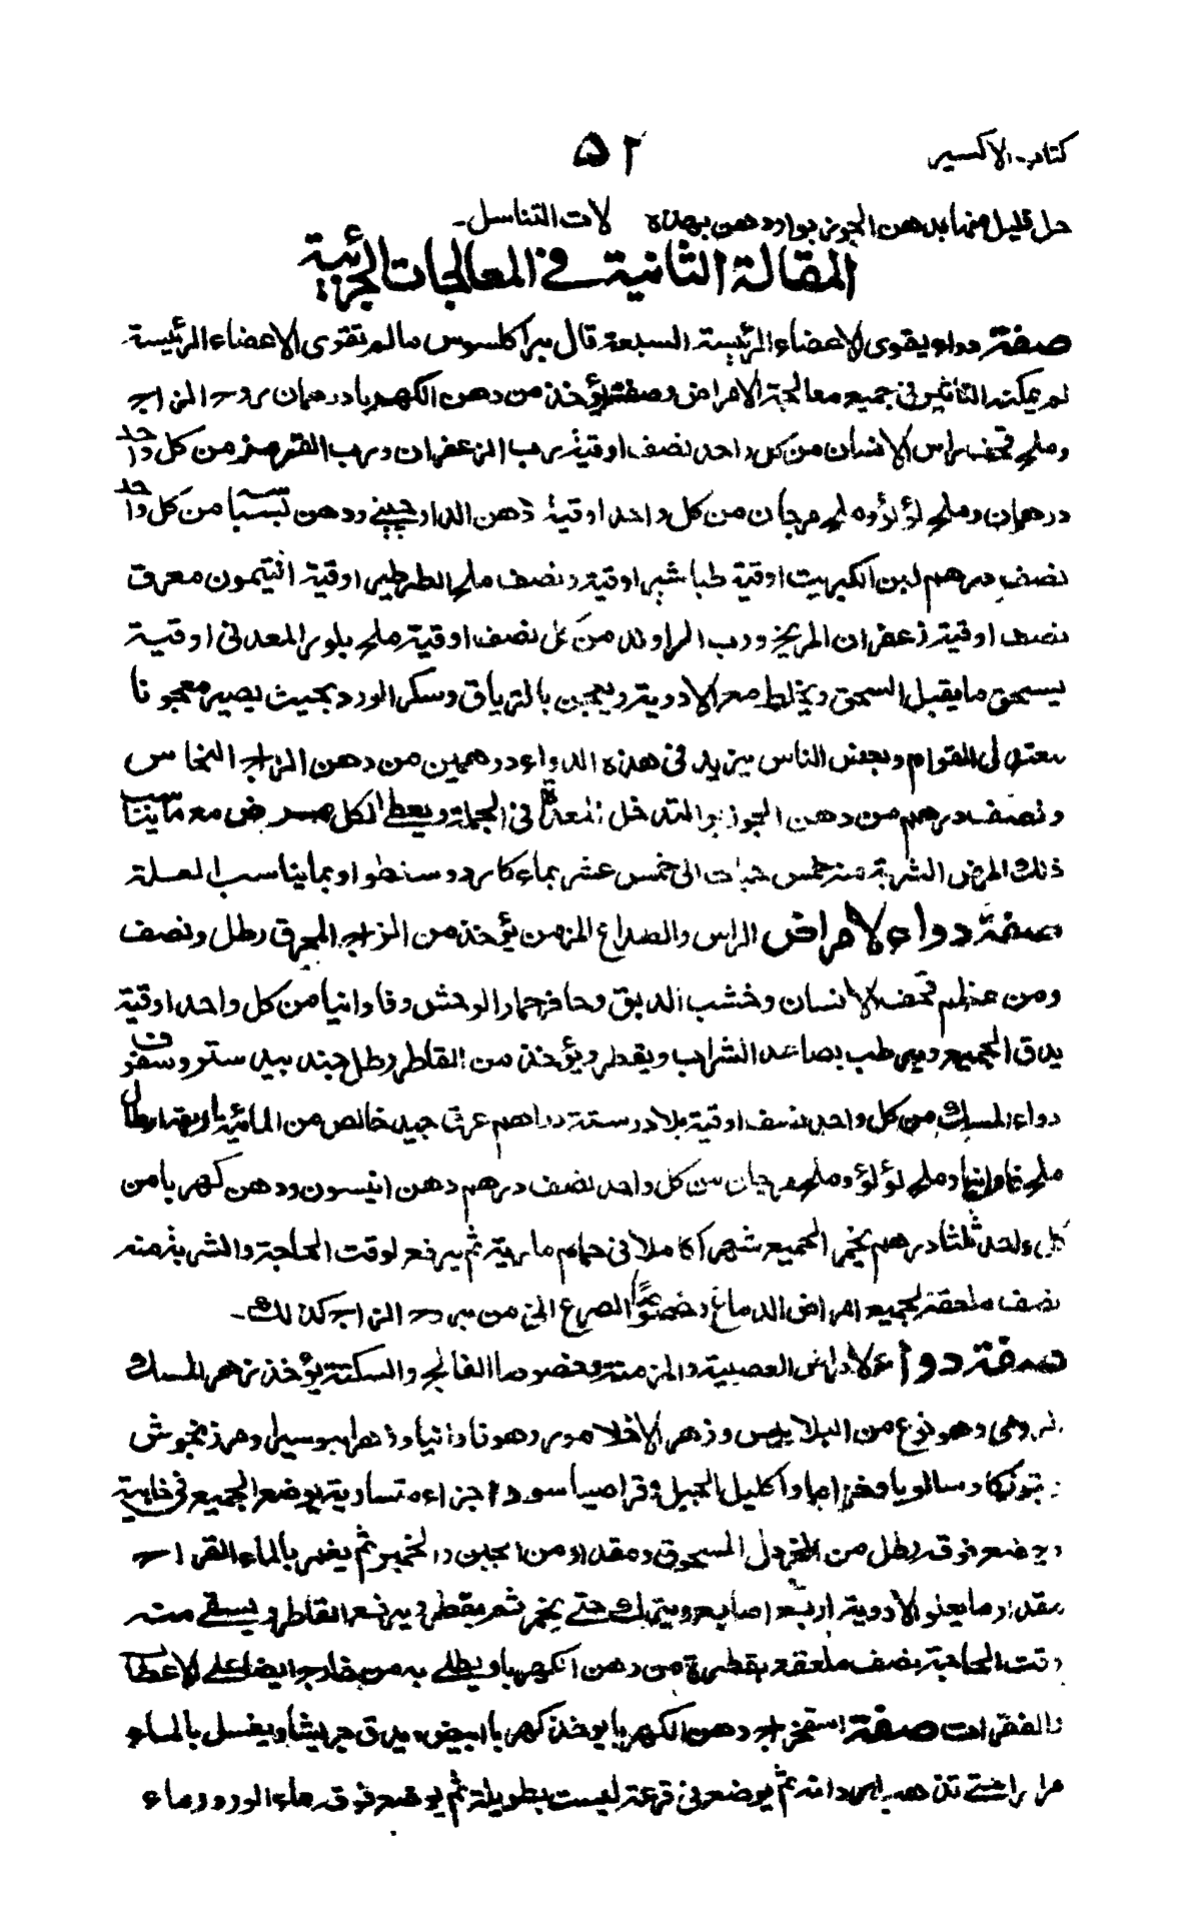 كتاب الاكسير
۵۲
حل قليل منها بدهن الجوز بوا ودهن بهذه لات التناسل۔
المقالة الثانية فى المعالجات الجزئية
صفة دواء يقوى الاعضاء الرئيسة السبعة قال براكلسوس مالم تقوى الاعضاء الرئيسة
لم يمكنه التاثير فى جميع معالجة الامراض وصفته يؤخذ من دهن الكهربا درهمان روح الزاج
وملح قحف راس الانسان من كل واحد نصف اوقية رب الزعفران ورب من كل واحد
درهمان وملح لؤلؤ وملح مرجان من كل واحد اوقية دهن الدارچينى ودهن بسباسه من كل واحد
نصف درهم لبن الكبريت اوقية طباشير اوقية ونصف ملح الطرطير اوقية انتيمون معرق
نصف اوقية زعفران المريخ ورب الراوند من كل نصف اوقية ملح بلور المعدنى اوقية
يسحق مايقبل السحق ويخلط مع الادوية ويعجن بالترياق وسكر الورد بحيث يصير معجونا
معتدل القوام وبعض الناس يزيد فى هذه الدواء درهمين من دهن الزاج النحاس
ونصف درهم من دهن الجوز بوا لتدخل المعدة فى الجملة ويعطى لكل مرض مع مايناسب
ذلك المرض الشربة منه خمس حبات الى خمس عشر بماء كاردوسنطو او بما يناسب العلة
صفة دواء لامراض الراس والصداع المزمن يؤخذ من الزاج المحرق رطل ونصف
ومن عظم قحف الانسان وخشب الدبق وحافر حمار الوحش وفاوانيا من كل واحد اوقية
يدق الجميع ويرطب بصاعد الشراب ويقطر ويؤخذ من القاطر رطل جند بيد ستر وسفوف
دواء المسك من كل واحد نصف اوقية بلادر ستة دراهم عرق جيد خالص من المائية اربعة ارطال
ملح فاوانيا وملح لؤلؤ وملح مرجان من كل واحد نصف درهم دهن انيسون ودهن كهربا من
كل واحد ثلثا درهم يخمر الجميع شهرا كاملا فى حمام مارية ثم يرفع لوقت الحاجة والشربة منه
نصف ملعقة لجميع امراض الدماغ وخصوصا الصرع الخ من روح الزاج كذلك۔
صفة دواء للامراض العصبية والمزمنة وخصوصا الفالج والسكتة يؤخذ زهر المسك
الرومى وهو نوع من البلابس وزهر وهو فاوانيا وزهر ومرزنجوش
وسالويا واكليل الجبل وقراصيا سود اجزاء متساوية يوضع الجميع فى خابية
ويوضع فوقه رطل من الخردل المسحوق ومقدار من الجبن والخمير ثم يغمر بالماء القراح
مقدار ما يعلو الادوية اربعة اصابع ويترك حتى يخمر ثم يقطر ويرفع القاطر ويسقى منه
وقت الحاجة نصف ملعقة بقطرة من دهن الكهربا ويطلى به من خارج ايضا على الاعضاء
والفقرات صفة استخراج دهن الكهربا يوخذ كهربا ابيض ويدق جريشا ويغسل بالماء
مرارا حتى تذهب ثم يوضع فى قرعة ليست بطويلة ثم يوضع فوقه ماء الورد وماء